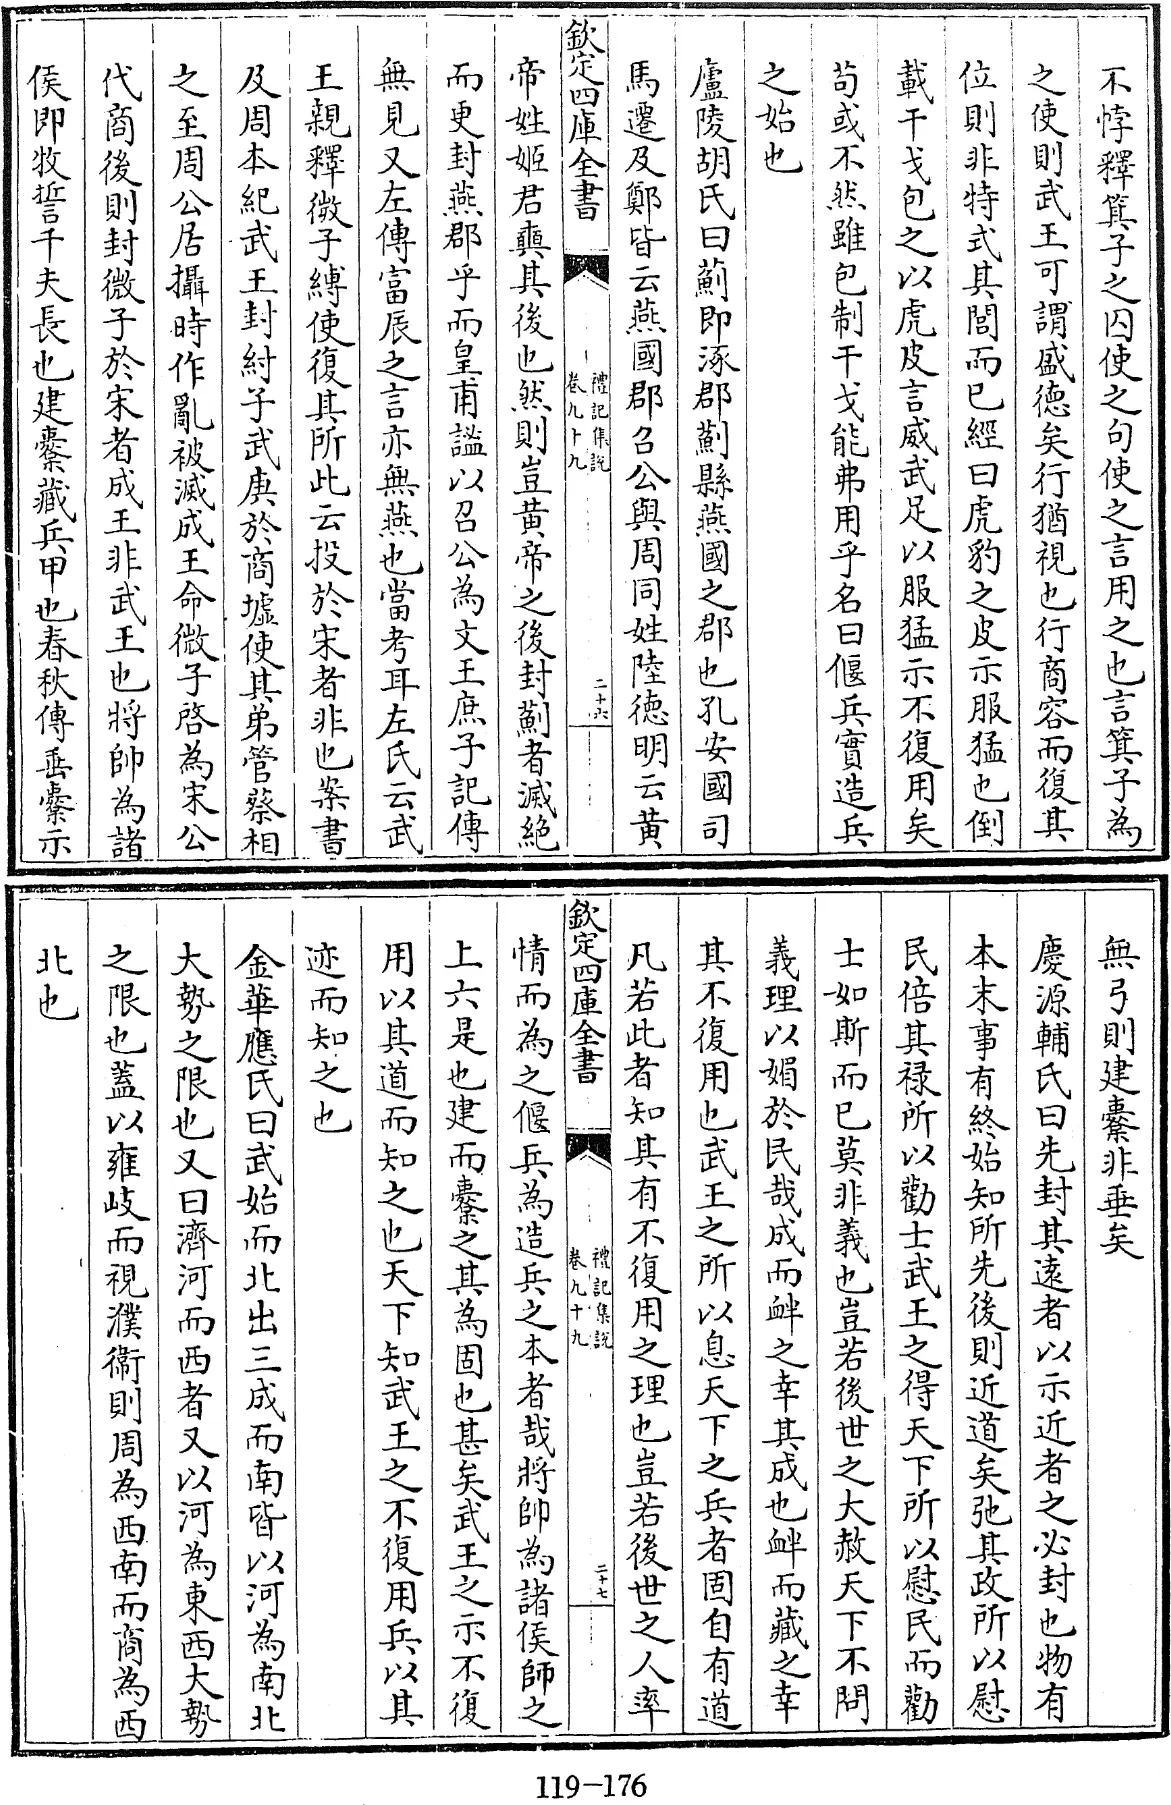 不悖釋箕子之囚使之句使之言用之也言箕子為
之使則武王可謂盛德矣行猶視也行商容而復其
位則非特式其閭而已經曰虎豹之皮示服猛也倒
載干戈包之以虎皮言威武足以服猛示不復用矣
苟或不然雖包制干戈能弗用乎名曰偃兵實造兵
之始也
廬陵胡氏曰薊即涿郡薊縣燕國之郡也孔安國司
馬遷及鄭皆云燕國郡召公與周同姓陸德明云黃
欽定四庫全書
禮記集說
卷九十九
二十六
帝姓姬君奭其後也然則豈黃帝之後封薊者滅絕
而更封燕郡乎而皇甫謐以召公為文王庶子記傳
無見又左傳富辰之言亦無燕也當考耳左氏云武
王親釋微子縛使復其所此云投於宋者非也案書
及周本紀武王封紂子武庚於商墟使其弟管蔡相
之至周公居攝時作亂被滅成王命微子啓為宋公
代商後則封微子於宋者成王非武王也將帥為諸
侯即牧誓千夫長也建櫜藏兵甲也春秋傳垂櫜示
無弓則建櫜非垂矣
慶源輔氏曰先封其遠者以示近者之必封也物有
本末事有終始知所先後則近道矣弛其政所以慰
民倍其祿所以勸士武王之得天下所以慰民而勸
士如斯而已莫非義也豈若後世之大赦天下不問
義理以媚於民哉成而衅之幸其成也衅而藏之幸
其不復用也武王之所以息天下之兵者固自有道
凡若此者知其有不復用之理也豈若後世之人率
欽定四庫全書
禮記集說
卷九十九
二十七
情而為之偃兵為造兵之本者哉將帥為諸侯師之
上六是也建而櫜之其為固也甚矣武王之示不復
用以其道而知之也天下知武王之不復用兵以其
迹而知之也
金華應氏曰武始而北出三成而南皆以河為南北
大勢之限也又曰濟河而西者又以河為東西大勢
之限也蓋以雍岐而視濮衞則周為西南而商為西
北也
119-176